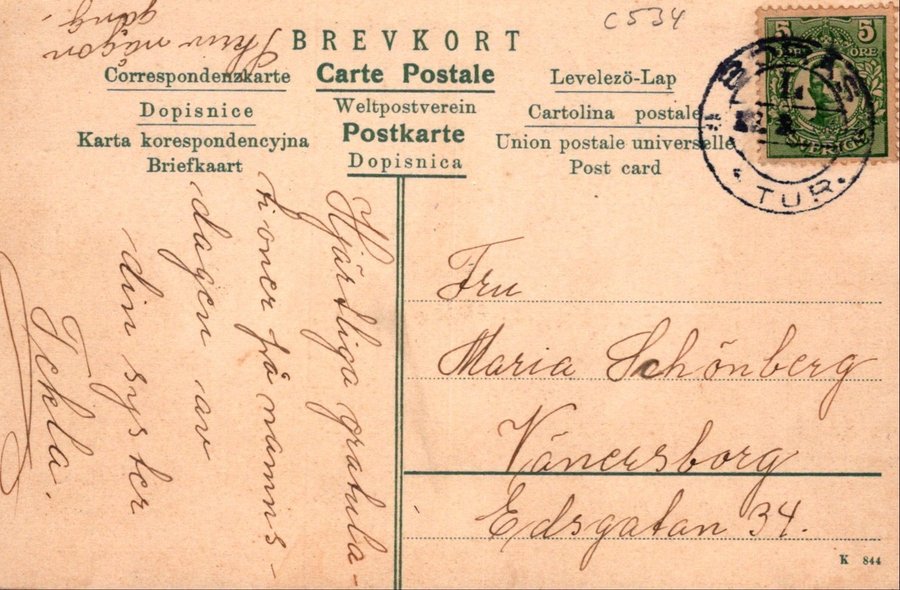 C 534
BREVKORT
Correspondenzkarte
Carte Postale
Levelező-Lap
Dopisnice
Weltpostverein
Cartolina postale
Karta korespondencyjna
Postkarte
Union postale universelle
Briefkaart
Dopisnica
Post card
5 5
ÖRE
SVERIGE
BORÅS
L.
TUR.
Skriv någon
gång.
Hjärtliga gratula-
tioner på namns-
dagen av
din syster
Tekla.
Fru
Maria Schönberg
Vänersborg
Edsgatan 34.
K 844